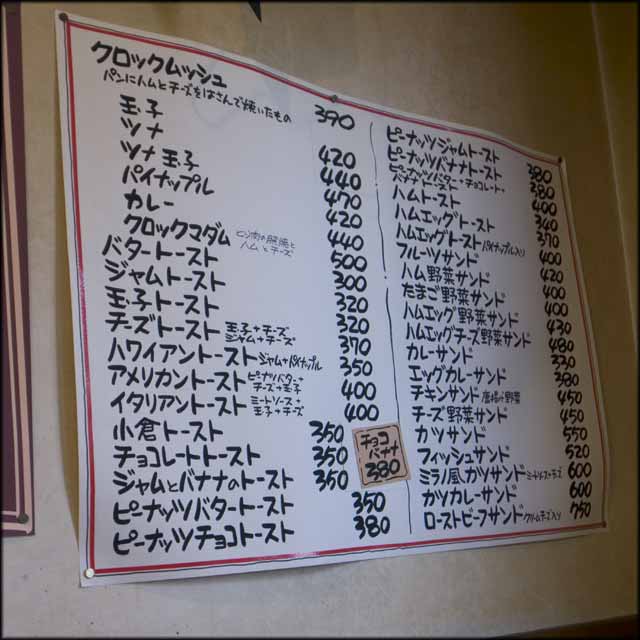 クロックムッシュ 390
パンにハムとチーズをはさんで焼いたもの
玉子 420
ツナ 440
ツナ玉子 470
パイナップル 420
カレー 440
クロックマダム とり肉の照焼と ハムとチーズ 500
バタートースト 300
ジャムトースト 320
玉子トースト 320
チーズトースト 玉子+チーズ ジャム+チーズ 370
ハワイアントースト ジャム+パイナップル 350
アメリカントースト ピーナツバター+ チーズ+玉子 400
イタリアントースト ミートソース+ 玉子+チーズ 400
小倉トースト 350
チョコレートトースト 350
ジャムとバナナのトースト 350
ピーナッツバタートースト 350
ピーナッツチョコトースト 380
チョコ
バナナ
380
ピーナッツジャムトースト 380
ピーナッツバナナトースト 380
ピーナッツバター・チョコレート・
バナナトースト 400
ハムトースト 340
ハムエッグトースト 370
ハムエッグトースト パイナップル入り 400
フルーツサンド 420
ハム野菜サンド 400
たまご野菜サンド 400
ハムエッグ野菜サンド 430
ハムエッグチーズ野菜サンド 480
カレーサンド 330
エッグカレーサンド 380
チキンサンド 唐揚げ野菜 450
チーズ野菜サンド 450
カツサンド 550
フィッシュサンド 520
ミラノ風カツサンド ミートソース+チーズ 600
カツカレーサンド 600
ローストビーフサンド クリームチーズ入り 750